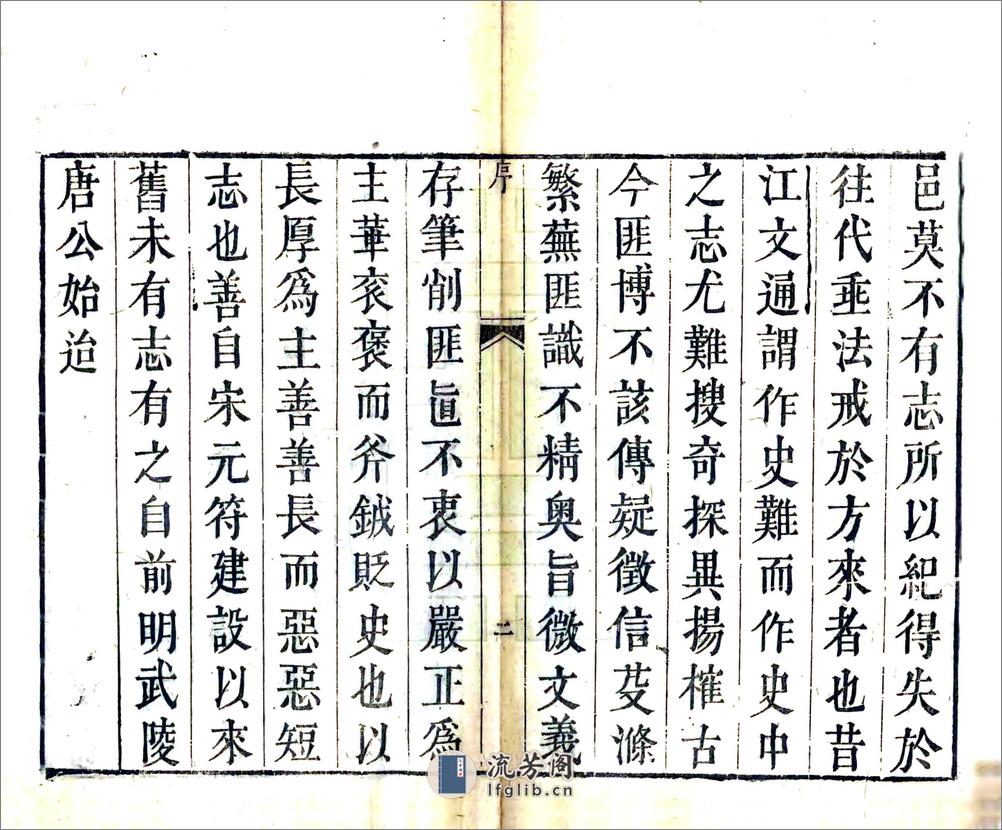 邑莫不有志所以紀得失於
往代垂法戒於方來者也昔
江文通謂作史難而作史中
之志尤難搜奇探異揚榷古
今匪博不該傳疑徵信芟滌
繁蕪匪識不精奧旨微文義
序
二
存筆削匪眞不衷以嚴正爲
主華衮褒而斧鉞貶史也以
長厚爲主善善長而惡惡短
志也善自宋元符建設以來
舊未有志有之自前明武陵
唐公始迨
流芳阁
lfglib.cn